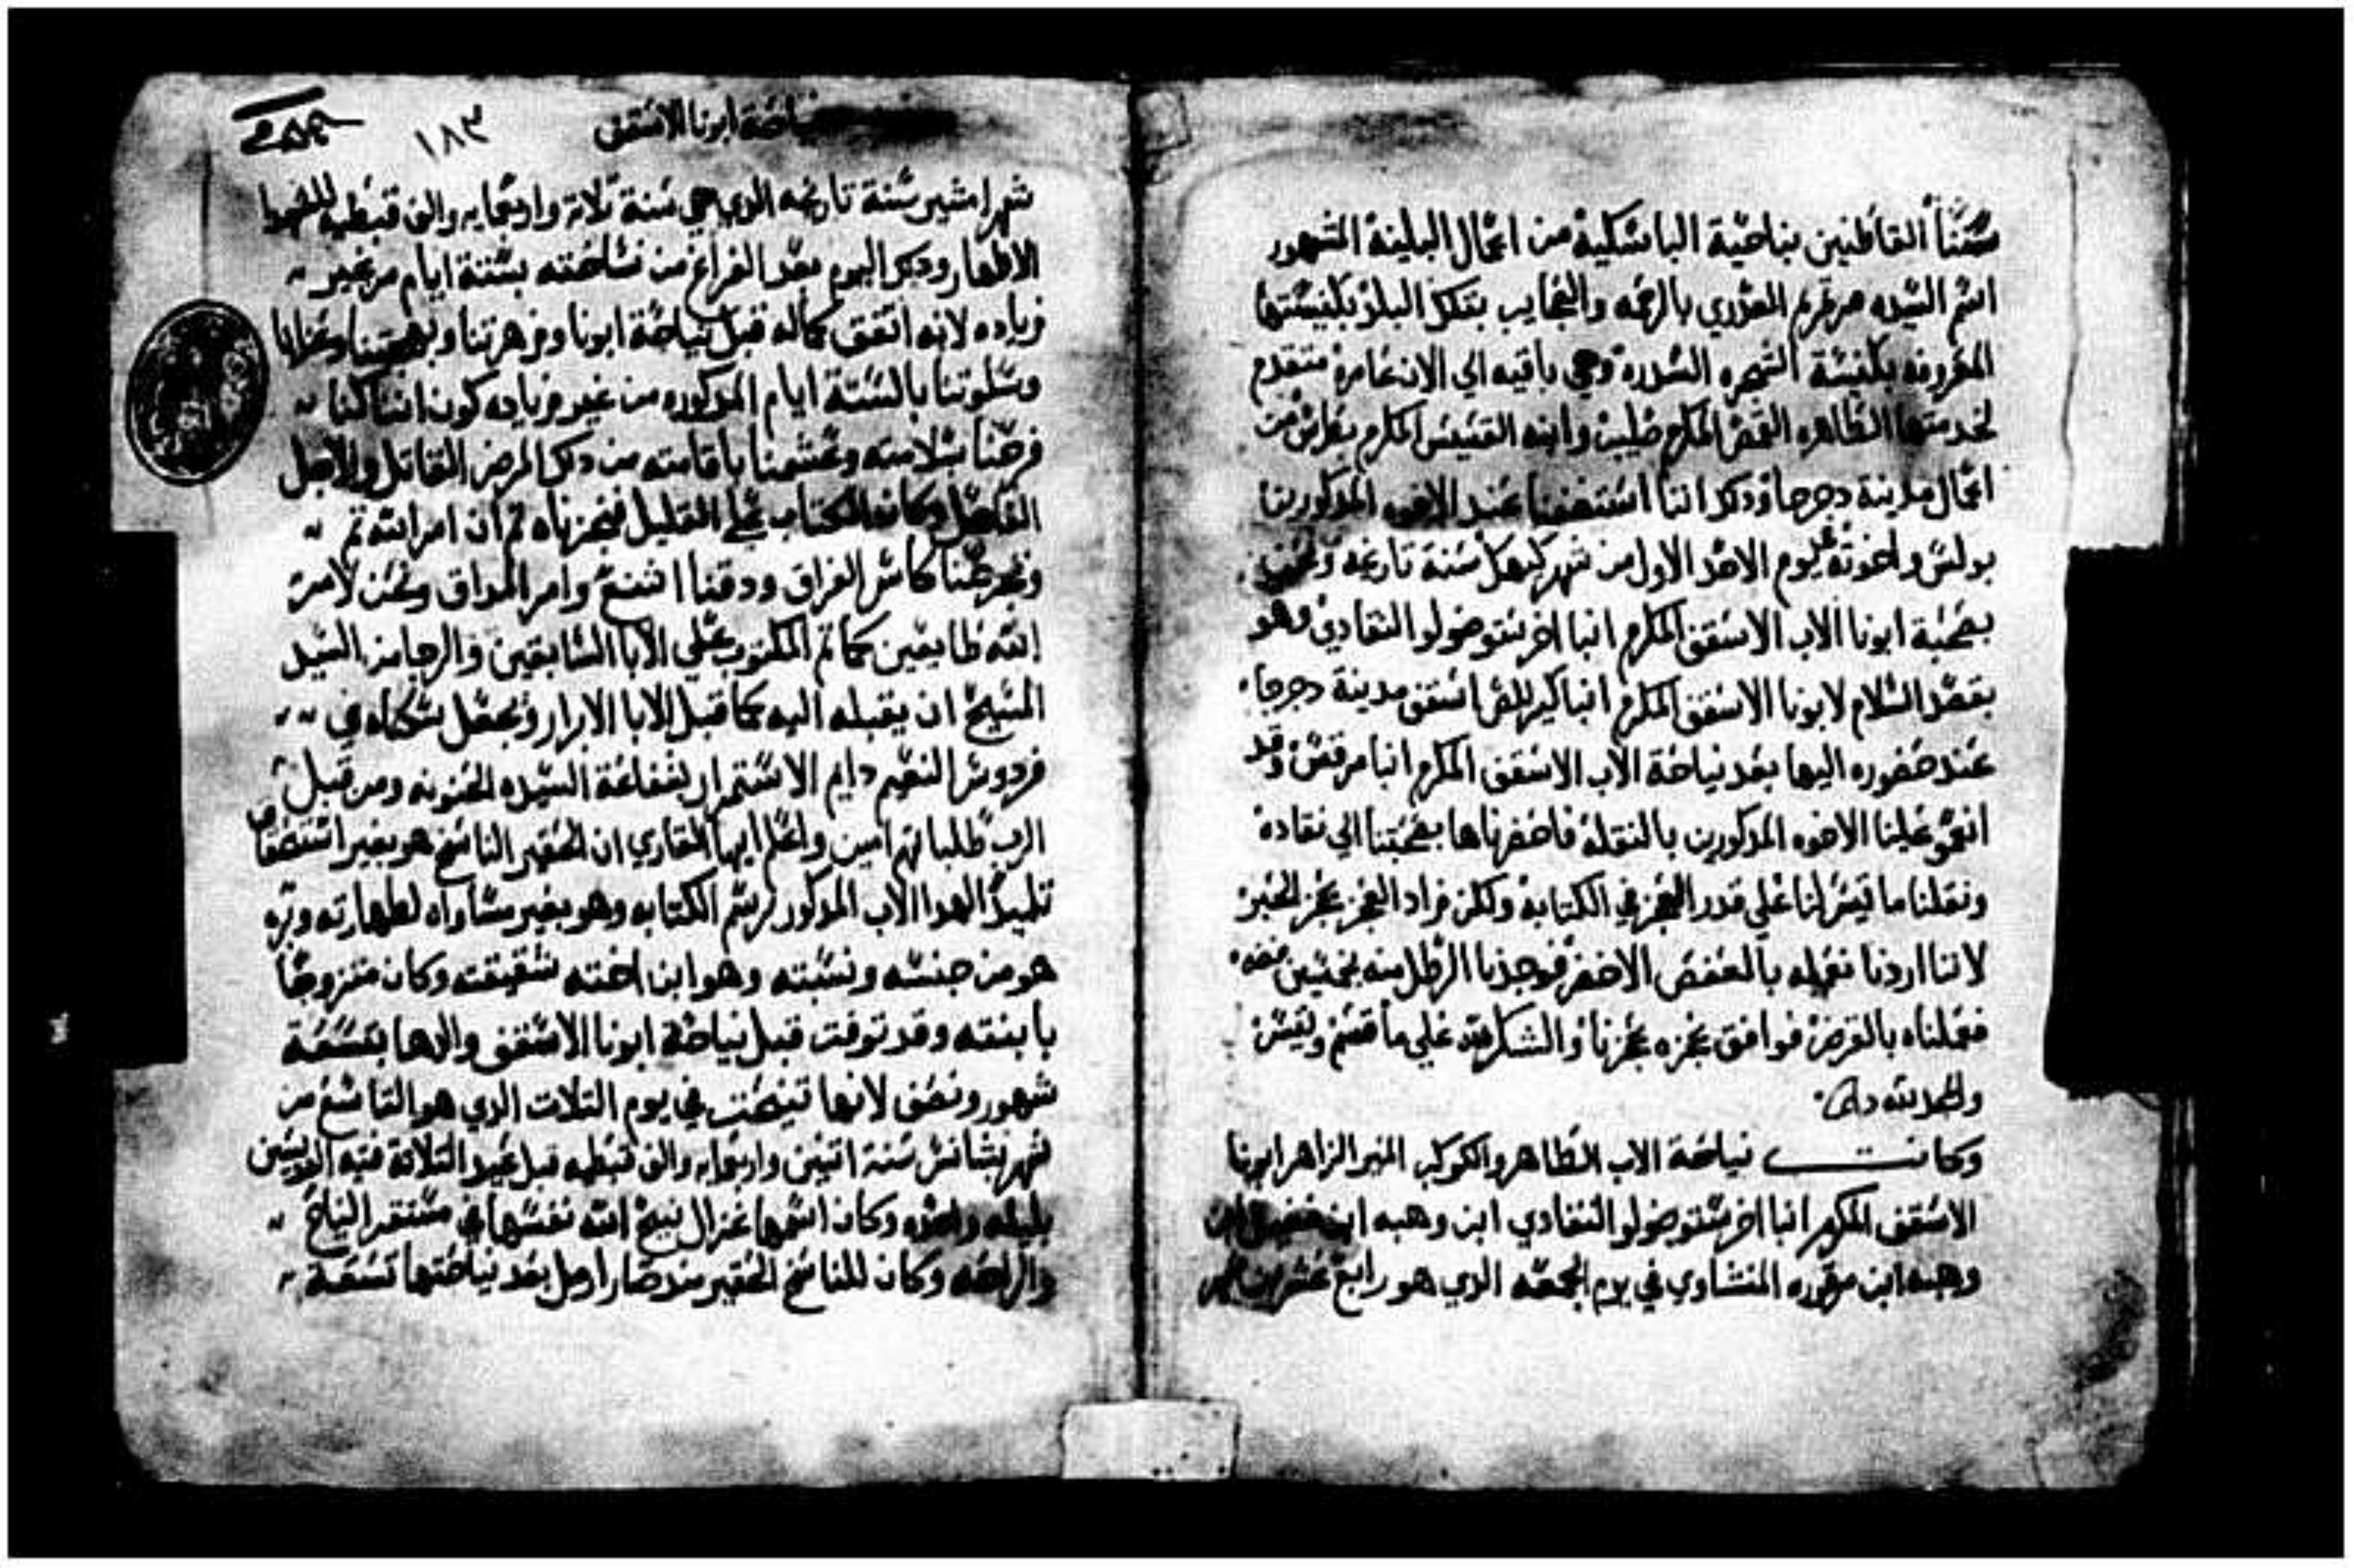 سكناً القاطنين بناحية الباسكلية من اعمال البلينة المشهور
اسم السيده مرتمريم العدري بالرحمه والعجايب بتلك البلد بكنيستها
المعروفه بكنيسة الشجره السدرة وهي باقيه الي الان عامرة متقدم
لخدمتها الطاهره القمص المكرم صليب وابنه القسيس المكرم بطرس من
اعمال مدينة دجرجا ودكر اننا استضفنا عند الاخوه المدكورين
بولس واخوته في يوم الاحد الاول من شهر كيهك سنة تاريخه ونحن
بصحبة ابونا الاب الاسقف المكرم انبا اخرستوضولو النقادي وهو
بقصد السلام لابونا الاسقف المكرم انبا كيرللص اسقف مدينة دجرجا
عند حضوره اليها بعد نياحة الاب الاسقف المكرم انبا مرقص وقد
انعمو علينا الاخوه المدكورين بالنقله فاحضرناها بصحبتنا الي نقادة
ونقلنا ما تيسر لنا علي قدر العجز في الكتابة ولكن زاد العجز عجز الحبر
لاننا اردنا نعمله بالعفص الاخضر فوجدنا الرطل منه بخمسين فضه
فعملناه بالقرض فوافق عجزه عجزنا والشكر لله علي ما قسم ويسر
والحمد لله دايما
وكانت نياحة الاب الطاهر والكوكب المنير الزاهر ابونا
الاسقف المكرم انبا اخرستوضولو النقادي ابن وهبه ابن
وهبه ابن مرقوره المنشاوي في يوم الجمعه الدي هو رابع عشر من شهر
نياحة ابونا الاسقف ١٨٣
شهر امشير سنة تاريخه الدي هي سنة تلاتة واربعمايه والف قبطيه للشهدا
الاطهار ودكر اليوم بعد الفراغ من نساخته بستة ايام من غير
زياده لانه اتفق كماله قبل نياحة ابونا وزهرتنا وبهجتنا وعزانا
وسلوتنا بالستة ايام المدكوره من غير زياده كون اننا كنا
فرحنا بسلامته وعشمنا باقامته من دكر المرض القاتل والاجل
الفاصل وكان الكتاب علي القليل فنجزناه تم ان امر الله تم
وتجرعنا كاس الفراق ودقنا اشنع وامر المداق ونحن لامر
الله طايعين كما تم المكتوب علي الابا السابقين والرجا من السيد
المسيح ان يقبله اليه كما قبل الابا الابرار ويجعل سكناه في
فردوس النعيم دايم الاستمرار بشفاعة السيده الحنونه ومن قبل
الرب طلباتهم امين واعلم ايها القاري ان الحقير الناسخ هو بغير استحقاق
تلميد لهدا الاب المدكور برسم الكتابه وهو بغير مساواه لطهارته وبره
هو من جنسه ونسبته وهو ابن اخته شقيقته وكان متزوجا
بابنته وقد توفت قبل نياحة ابونا الاسقف والدها بتسعة
شهور ونصف لانها تنيحت في يوم التلات الدي هو التاسع من
شهر بشانس سنة اتنين واربعمايه والف قبطيه قبل عيد التلاتة فتيه القديسين
بليله واحده وكان اسمها غزال نيح الله نفسها في مستقر النياح
والراحه وكان للناسخ الحقير مند صار ارمل بعد نياحتها تسعة